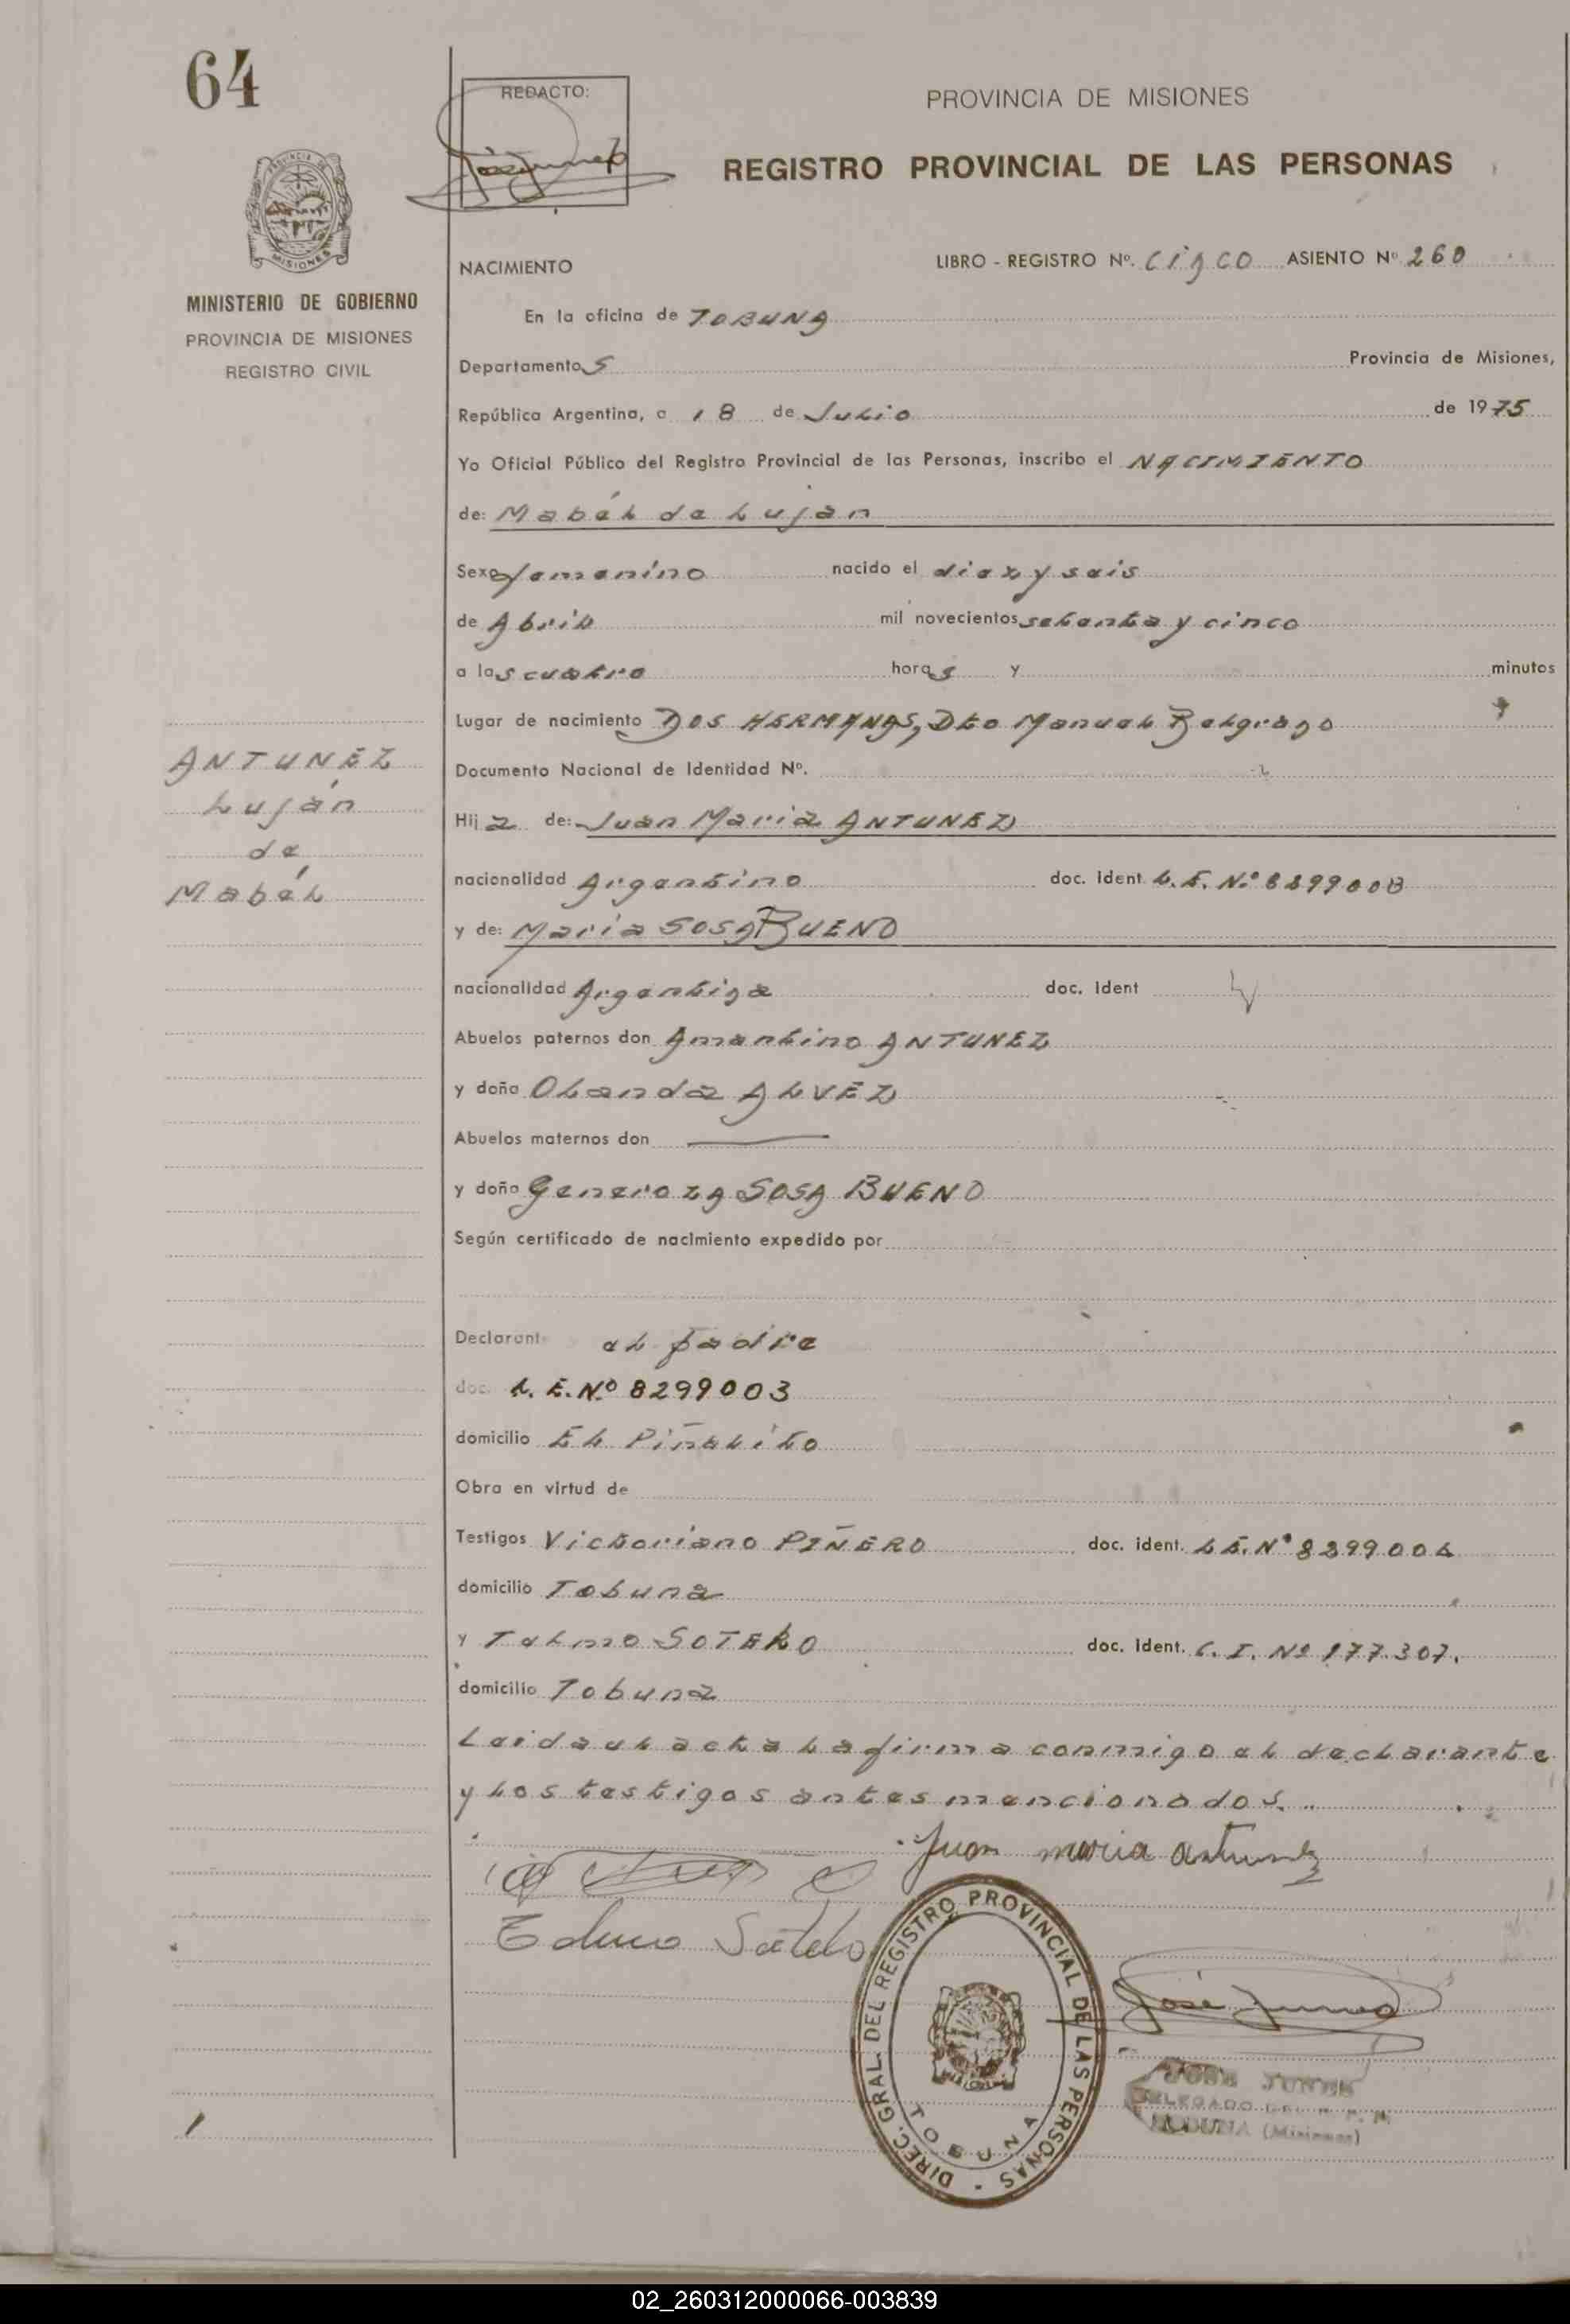 64
REDACTO:
PROVINCIA DE MISIONES
REGISTRO PROVINCIAL DE LAS PERSONAS
MISIONES
MINISTERIO DE GOBIERNO
PROVINCIA DE MISIONES
REGISTRO CIVIL
NACIMIENTO LIBRO - REGISTRO Nº. cinco ASIENTO Nº 260
En la oficina de TOBUNA
Departamento S Provincia de Misiones,
República Argentina, a 18 de Julio de 1975
Yo Oficial Público del Registro Provincial de las Personas, inscribo el NACIMIENTO
de: Mabél de Lujan
Sexo femenino nacido el diez y seis
de Abril mil novecientos setenta y cinco
a las cuatro horas y minutos
Lugar de nacimiento DOS HERMANAS, Dto Manuel Belgrano
ANTUNEZ
Luján
de
Mabél
Documento Nacional de Identidad Nº.
Hija de: Juan Maria ANTUNEZ
nacionalidad Argentino doc. ident. L.E. Nº 8299003
y de: Maria SOSA BUENO
nacionalidad Argentina doc. ident
Abuelos paternos don Amantino ANTUNEZ
y doña Olanda ALVEZ
Abuelos maternos don
y doña Generoza SOSA BUENO
Según certificado de nacimiento expedido por
Declarant el padre
doc. L.E. Nº 8299003
domicilio El Piñalito
Obra en virtud de
Testigos Victoriano PIÑERO doc. ident. L.E. Nº 8299004
domicilio Tobuna
y Telmo SOTELO doc. ident. C.I. Nº 177.307.
domicilio Tobuna
Leida el acta la firma conmigo el declarante
y los testigos antes mencionados.
Juan maria antunez
Telmo Sotelo
DIREC. GRAL. DEL REGISTRO PROVINCIAL DE LAS PERSONAS -
TOBUNA
José Junes
JOSE JUNES
DELEGADO DEL R. P. P.
TOBUNA (Misiones)
02_260312000066-003839